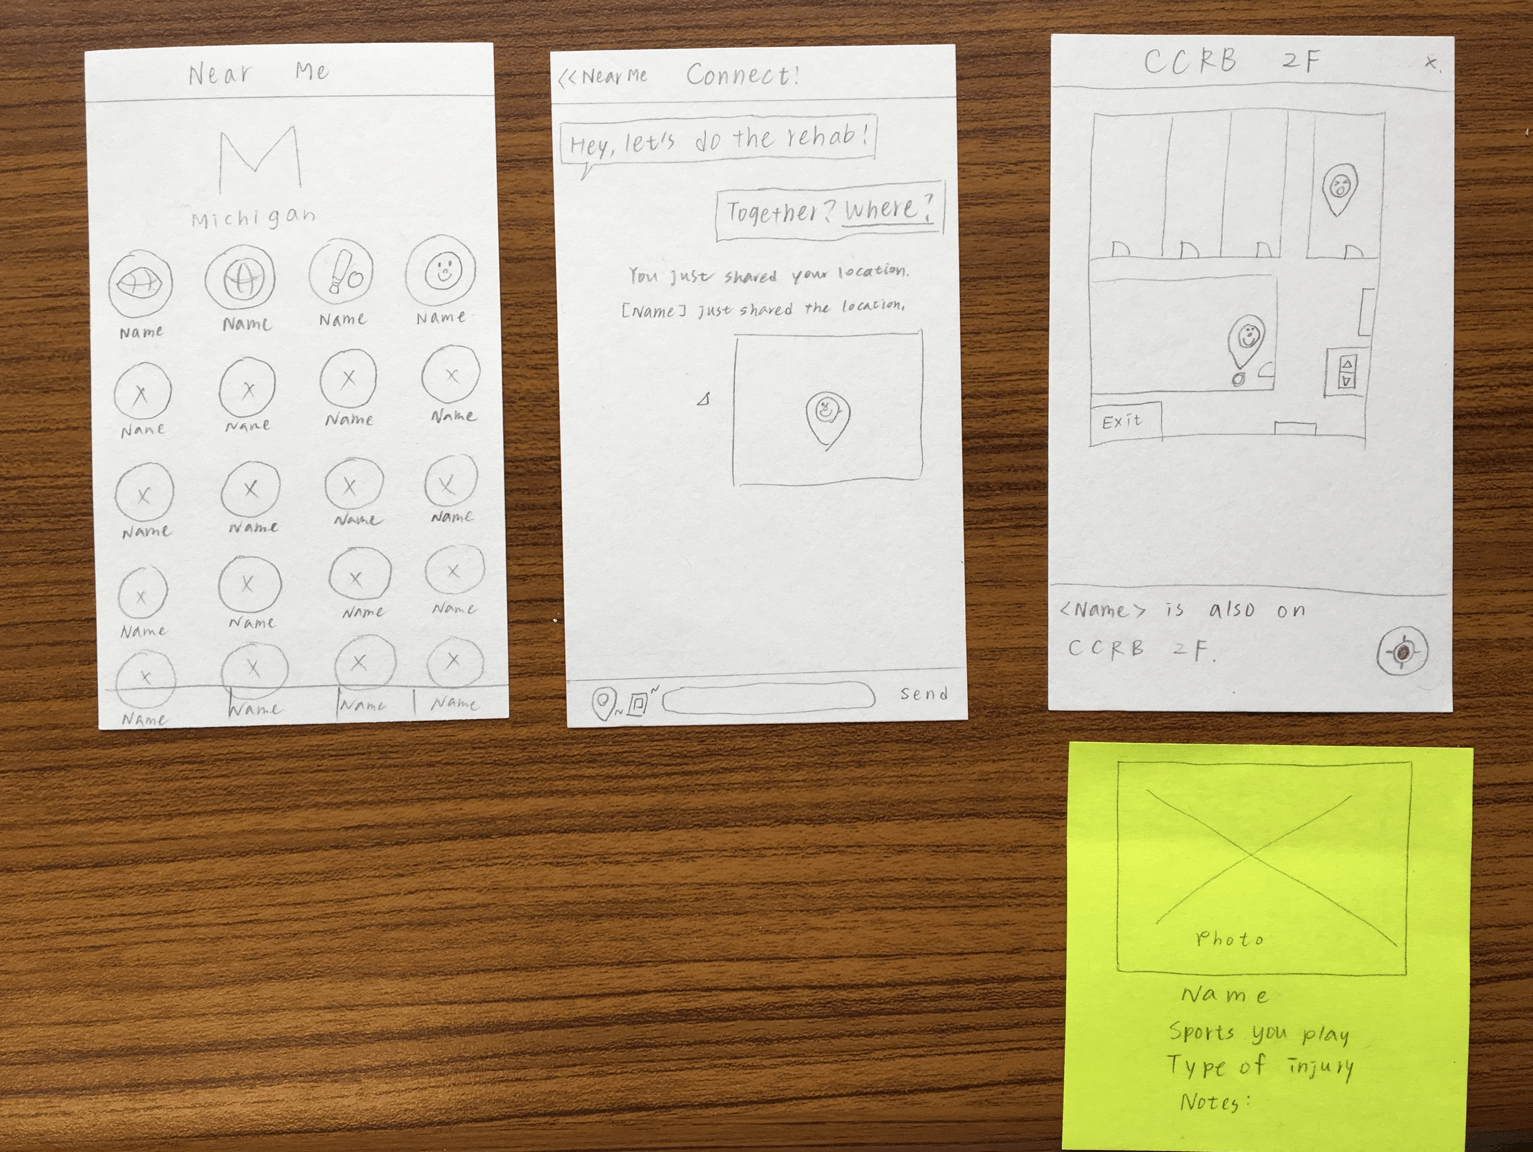 Near Me
M
Michigan
Name Name Name Name
Nane Name Name Name
Name Name Name Name
Name Name Name Name
Name Name Name Name
<<Near Me Connect!
Hey, let's do the rehab!
Together? Where?
You just shared your location.
[Name] just shared the location.
Send
CCRB 2F x.
Exit
<Name> is also on
CCRB 2F.
Photo
Name
Sports you play
Type of injury
Notes: